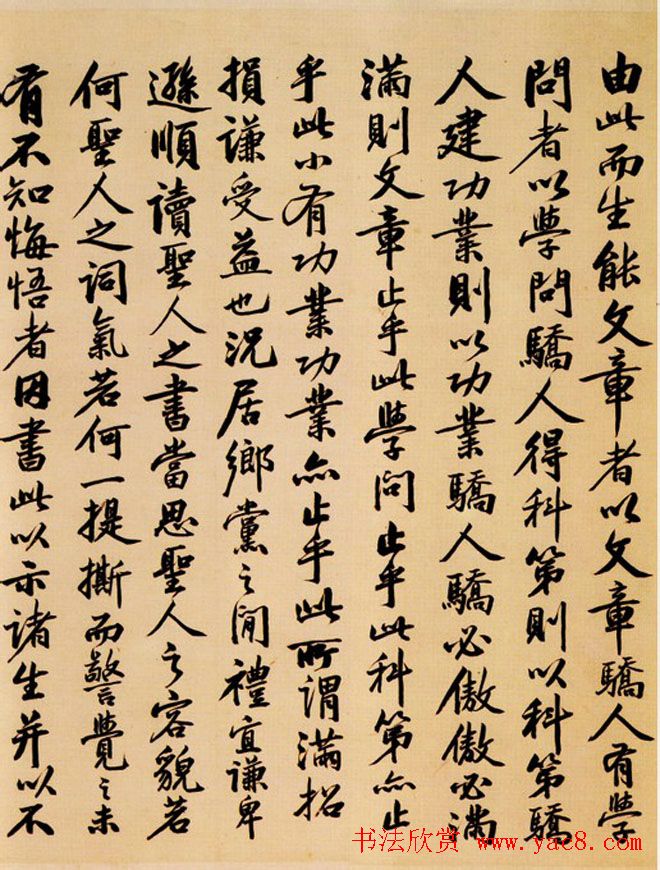 由此而生能文章者以文章驕人有學
問者以學問驕人得科第則以科第驕
人建功業則以功業驕人驕必傲傲必滿
滿則文章止乎此學问止乎此科第亦止
乎此小有功業功業亦止乎此所謂滿招
損謙受益也況居鄉黨之间禮宜謙卑
遜順讀聖人之書當思聖人之容貌若
何聖人之詞氣若何一提撕而警覺之未
有不知悔悟者因書此以示諸生并以不
书法欣赏 www.yac8.com